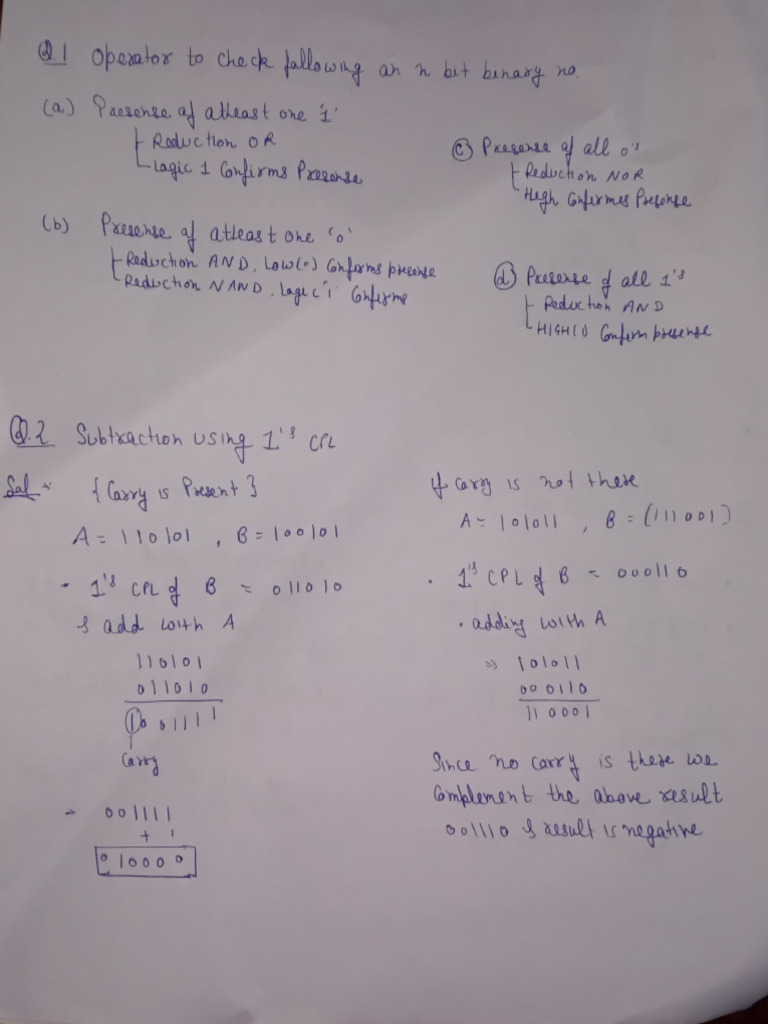 Q1 Operator to check following an n bit binary no.
(a) Presense of atleast one '1'
Reduction OR
Logic 1 Confirms Presense
(b) Presense of atleast one '0'
Reduction AND, Low(0) Confirms presense
Reduction NAND, Logic '1' Confirms
(c) Presense of all 0's
Reduction NOR
High Confirmes Presense
(d) Presense of all 1's
Reduction AND
HIGH(1) Confirm presense
Q.2 Subtraction using 1's CPL
Sol
{Carry is Present}
A = 110101 , B = 100101
· 1's CPL of B = 011010
& add with A
110101
011010
1001111
Carry
001111
+ 1
010000
If carry is not there
A = 101011 , B = (111001)
· 1's CPL of B = 000110
· adding with A
⇒ 101011
000110
110001
Since no carry is there we
Complement the above result
001110 & result is negative